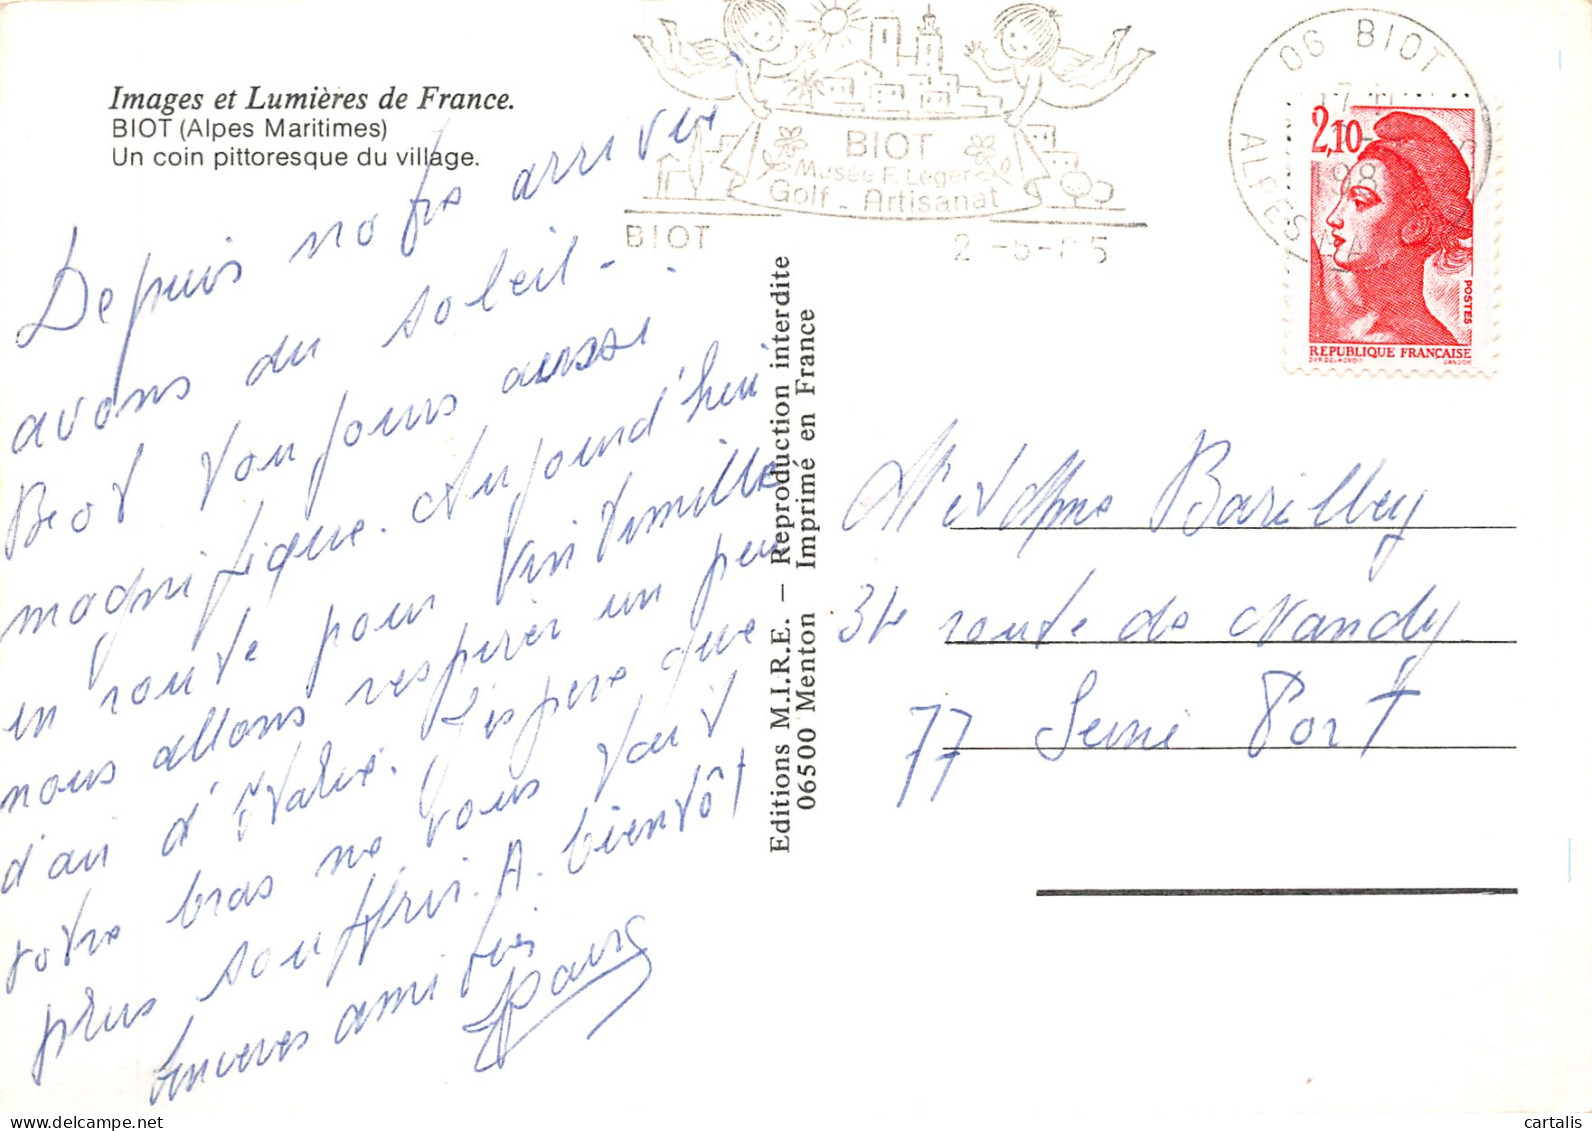 Images et Lumières de France.
BIOT (Alpes Maritimes)
Un coin pittoresque du village.
Depuis notre arrivée
avons du soleil -
Biot toujours aussi
magnifique. Aujourd'hui
en route pour Vintimille
nous allons respirer un peu
d'air d'Italie. J'espère que
votre bras ne vous fait
plus souffrir. A bientôt
Sincères amitiés
BIOT
Musée F. Léger
Golf - Artisanat
BIOT
2 -5- 5
06 BIOT
ALPES
2,10
POSTES
REPUBLIQUE FRANÇAISE
Editions M.I.R.E. — Reproduction interdite
06500 Menton Imprimé en France
Mr et Mme Barilley
34 route de Nandy
77 Seine Port
cartalis